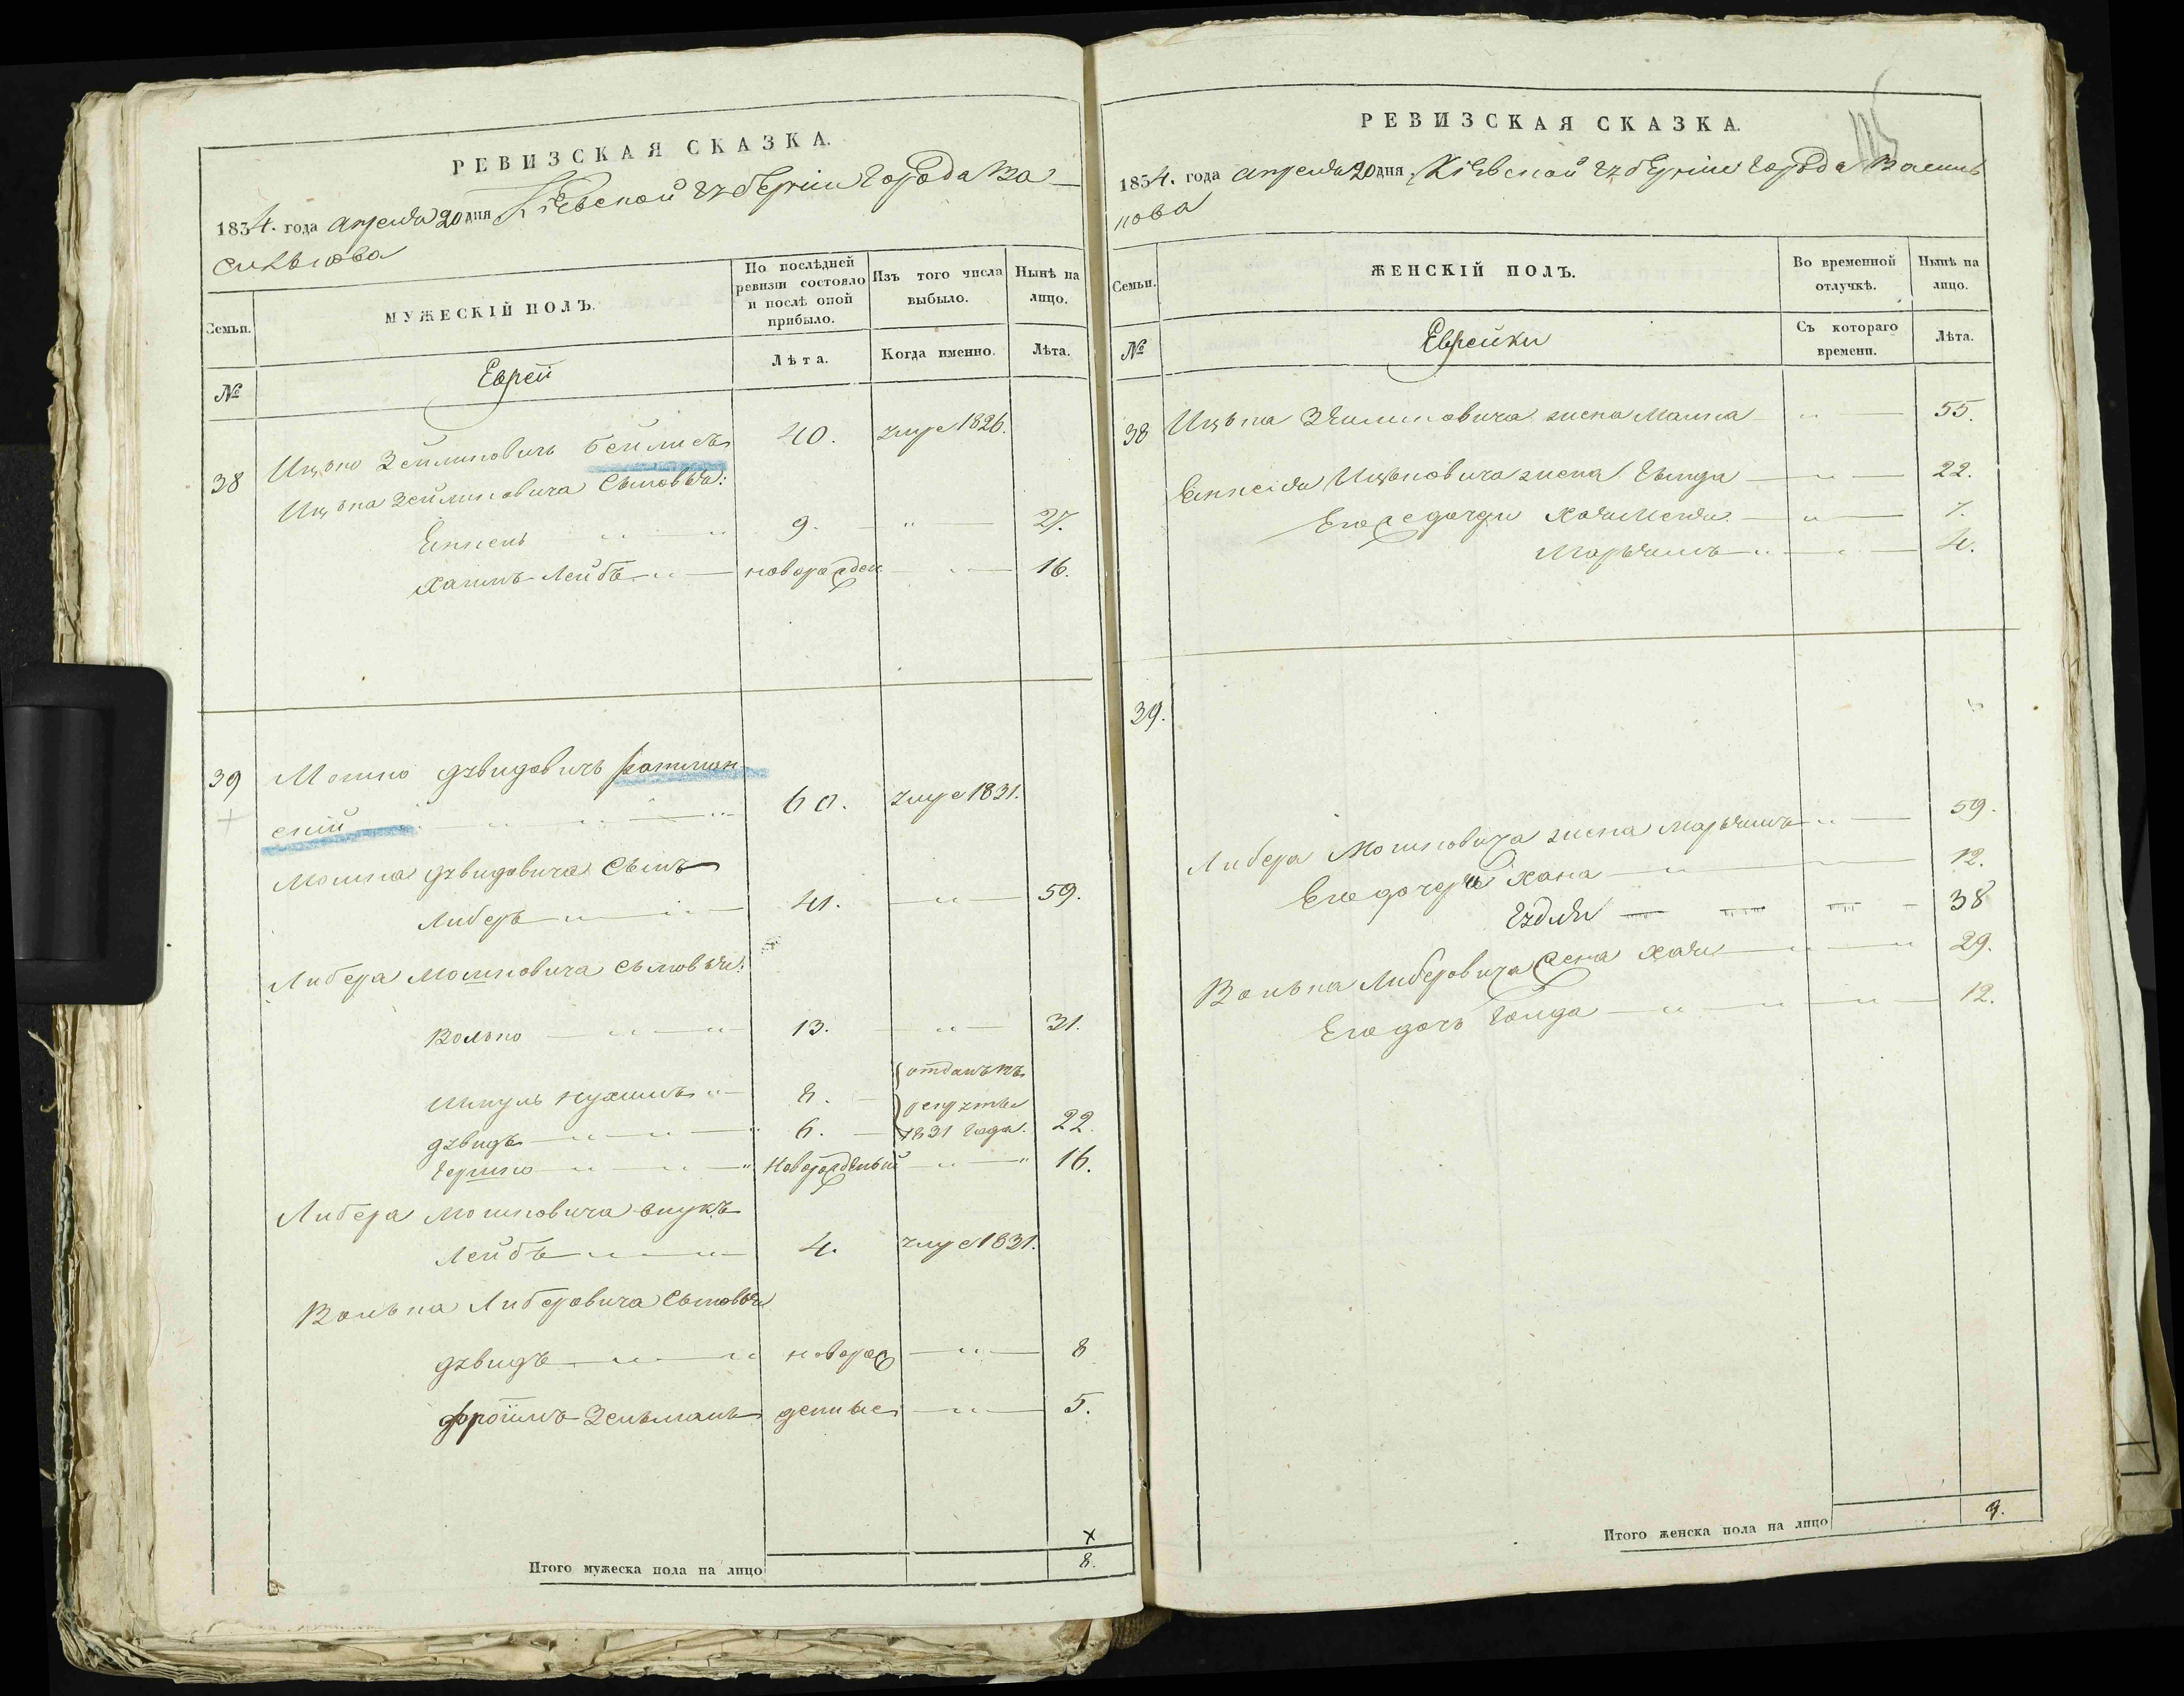 РЕВИЗСКАЯ СКАЗКА.
1834. года апреля 20 дня Кіевской губерніи города Ва-
силькова
Семьи. МУЖЕСКІЙ ПОЛЪ. По послѣдней ревизіи состояло и послѣ оной прибыло. Изъ того числа выбыло. Нынѣ на лицо.
№ Еврей Лѣта. Когда именно. Лѣта.
38 Ицько Зейликовичъ Бейлисъ 40. умре 1826.
Ицька Зейликовича сыновья:
9. 27.
Хаимъ Лейбъ новорожден 16.
39 Мошко Дувидовичъ
ский 60. умре 1831.
Мошка Дувидовича сынъ
Либеръ 41. 59.
Либера Мошковича сыновья:
Волько 13. 31.
Нухимъ 8. отданъ въ
рекруты
Дувидъ 6. 1831 года. 22.
Гершко новорожденый 16.
Либера Мошковича внукъ
Лейбъ 4. умре 1831.
Волька Либеровича сыновья
Дувидъ новорож 8
Фроимъ-Зельманъ денные 5.
Итого мужеска пола на лицо 8.
РЕВИЗСКАЯ СКАЗКА.
1834. года апреля 20 дня Кіевской губерніи города Василь
кова
Семьи. ЖЕНСКІЙ ПОЛЪ. Во временной отлучкѣ. Нынѣ на лицо.
№ Еврейки Съ котораго времени. Лѣта.
38 Ицька Зеиликовича жена Малка 55.
Ицьковича жена 22.
Его же дочери 7.
Марьямъ 4.
39.
Либера Мошковича жена Марьямъ 59.
Его дочери Хана 12.
38
Волька Либеровича жена Хая 29.
Его дочь Голда 12.
Итого женска пола на лицо 9.